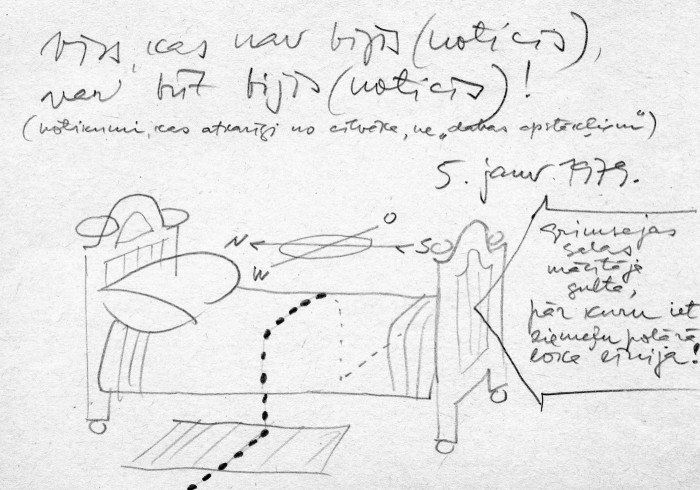 viss, kas nav bijis (noticis),
var būt bijis (noticis)!
(notikumi, kas atkarīgi no cilvēka, ne „dabas apstākļiem”)
5. janv. 1979.
O
N
S
W
Grimsejas
salas
mācītāja
gulta,
pār kuru iet
ziemeļu polārā
loka līnija!